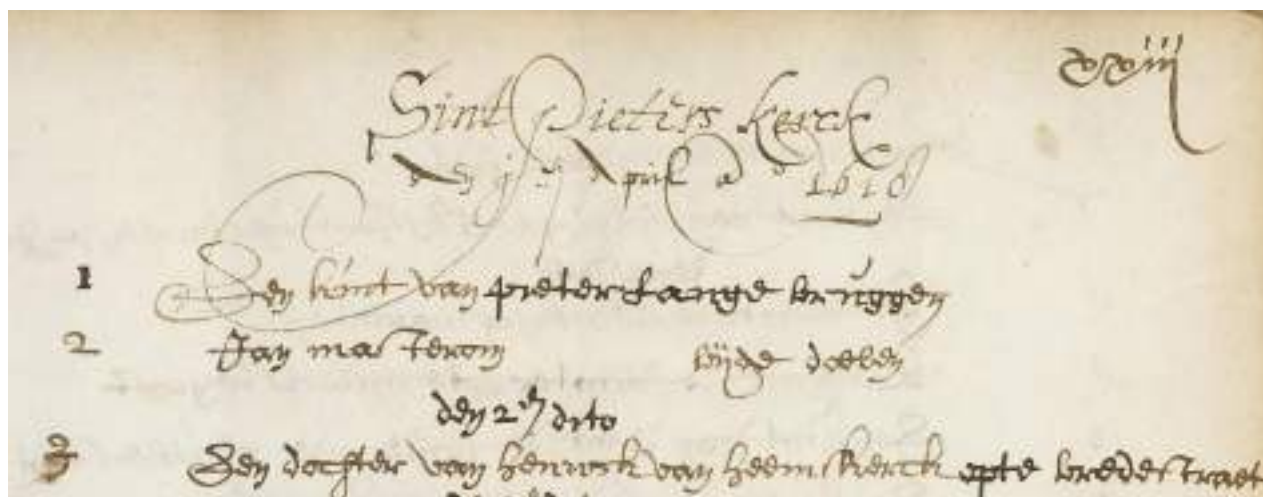 xxiij
Sint Pieters kerck
den 1en April ao 1618
1 Een kint van pieter Lange bruggen
2 Jan masteron bijde doelen
den 2en dito
3 Een dochter van henrick van heemskerck opte bredestraet